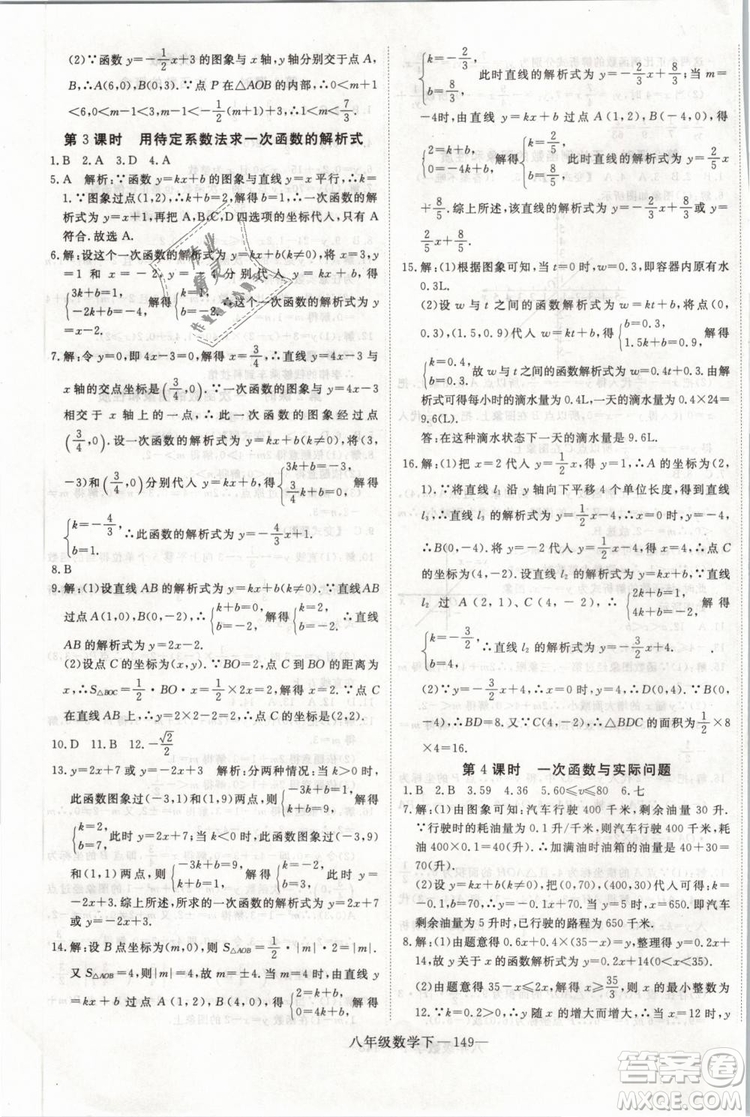 (2)∵函数 y=-1/2x+3 的图象与 x 轴、y 轴分别交于点 A,
B,∴A(6,0),B(0,3).∵点 P 在△AOB 的内部,∴0<m+1
<6,0<m-1<-1/2(m+1)+3,∴1<m<7/3.
第 3 课时 用待定系数法求一次函数的解析式
1.B 2.A 3.D 4.A
5.A 解析:∵函数 y=kx+b 的图象与直线 y=x 平行,∴k
=1.∵图象过点(1,2),∴k+b=2,∴b=1,∴此函数的解
析式为 y=x+1,再把 A,B,C,D四选项的坐标代入,只有 A
符合.故选 A.
6.解:设这个一次函数的解析式为 y=kx+b(k≠0),将点
{3k+b=1, k+b=-1, {k=1, b=-2,
y=x-2.
7.解:令 y=0,即 4x-3=0,解得 x=3/4,∴函数 y=4x-3 与
x 轴的交点坐标是(3/4,0).∵一次函数的图象与 y=4x-3
相交于 x 轴上的一点,∴一次函数的图象经过点
(3/4,0).令一次函数的解析式为 y=kx+b(k≠0),将点(1,
-3)和点(3/4,0)分别代入 y=kx+b 得{k+b=-3, 3/4k+b=0, 解得
{k=-12, b=9, ∴此函数的解析式为 y=-12x+9.
8.B
9.解:(1)设直线 AB 的解析式为 y=kx+b(k≠0).∵直线 AB
过点 A(1,0),B(0,-2),∴{k+b=0, b=-2, 解得{k=2, b=-2, ∴直线
AB 的解析式为 y=2x-2.
(2)设点 C 的坐标为(x,y).∵BO=2,点 C 到 BO 的距离为
x,∴S△BOC=1/2·BO·x=1/2×2·x=2,∴x=2.∵点 C 在直
线 AB 上,∴y=2×2-2=2,∴点 C 的坐标是(2,2).
10.D 11.B 12.-√2/2
13.y=2x+7 或 y=-2x+3 解析:分两种情况:①当 k>0 时,
将(-3,1)和(1,9)两点,代入 y=kx+b 得{-3k+b=1, k+b=9, 解得
{k=2, b=7, ∴此时 y=2x+7;②当 k<0 时,此函数图象过(-3,9)
和(1,1)两点,则{-3k+b=9, k+b=1, 解得{k=-2, b=3, ∴此时 y=
-2x+3.综上,此函数的解析式是 y=2x+7 或 y=-2x+3.
14.解:设 B 点坐标为(m,0),则 S△AOB=1/2·|m|·2=|m|=
4,∴m=±4.当 m=4 时,有{k+b=2, 4k+b=0, 解得
{k=-2/3, b=8/3, 此时直线的解析式为 y=-2/3x+8/3;当 m=
-4时,由直线 y=kx+b 的图象经过点 A(1,2),B(-4,0),有
{k+b=2, -4k+b=0, 解得{k=2/5, b=8/5, 此时直线的解析式为 y=2/5x
+8/5.综上所述,该直线的解析式为 y=-2/3x+8/3或 y=
2/5x+8/5.
15.解:(1)根据图象可知,当 t=0 时,w=0.3,即容器内原有水
0.3L.
(2)设 w 与 t 之间的函数解析式为 w=kt+b(k≠0),将点
(0,0.3),(1.5,0.9)代入 w=kt+b 得{b=0.3, 1.5k+b=0.9, 解得
{k=0.4, b=0.3, 故 w 与 t 之间的函数解析式为 w=0.4t+0.3.由解
析式可得每小时的滴水量为 0.4L,一天的滴水量为 0.4×24=
9.6(L).
答:在这种滴水状态下一天的滴水量是 9.6L.
15.解:(1)把 x=2 代入 y=1/2x,得 y=1,∴A 的坐标为(2,
1).∵将直线 l1 沿 y 轴向下平移 4 个单位长度,得到直线
l3,∴直线 l3 的解析式为 y=1/2x-4,∴x=0 时,y=-4,
∴B(0,-4).将 y=-2 代入 y=1/2x-4 得 x=4,∴点 C
的坐标为(4,-2).设直线 l2 的解析式为 y=kx+b.∵直线
l2 过 A(2,1),C(4,-2),∴{2k+b=1, 4k+b=-2, 解得
{k=-3/2, b=4, ∴直线 l2 的解析式为 y=-3/2x+4.
(2)∵y=-3/2x+4,∴x=0 时,y=4,∴D(0,4).∵B(0,
-4),∴BD=8.又∵C(4,-2),∴△BDC 的面积为1/2×8
×4=16.
第 4 课时 一次函数与实际问题
1.B 2.B 3.59 4.36 5.60≤v≤80 6.七
7.解:(1)由图象可知:汽车行驶 400 千米,剩余油量 30 升.
∵行驶时的耗油量为 0.1 升/千米,则汽车行驶 400 千米,耗
油 400×0.1=40(升).∴加满油时油箱的油量是 40+30=
70(升).
(2)设 y=kx+b(k≠0),把(0,70),(400,30)代入可得 k=
-0.1,b=70,∴y=-0.1x+70,当 y=5 时,x=650,即汽车
剩余油量 5 升时,已行驶的路程为 650 千米.
8.解:(1)由题意得 0.6x+0.4×(35-x)=y,整理得 y=0.2x
+14(0<x<35).
(2)由题意得 35-x≤2x,解得 x≥35/3,则 x 的最小整数为
12.∵k=0.2>0,∴y 随 x 的增大而增大,∴当 x=12 时,y
八年级数学下—149—